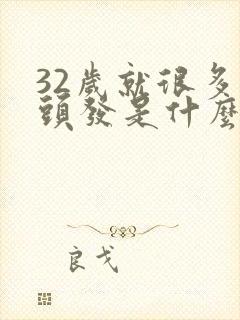 32歲就很多
頭發是什麼
良戈